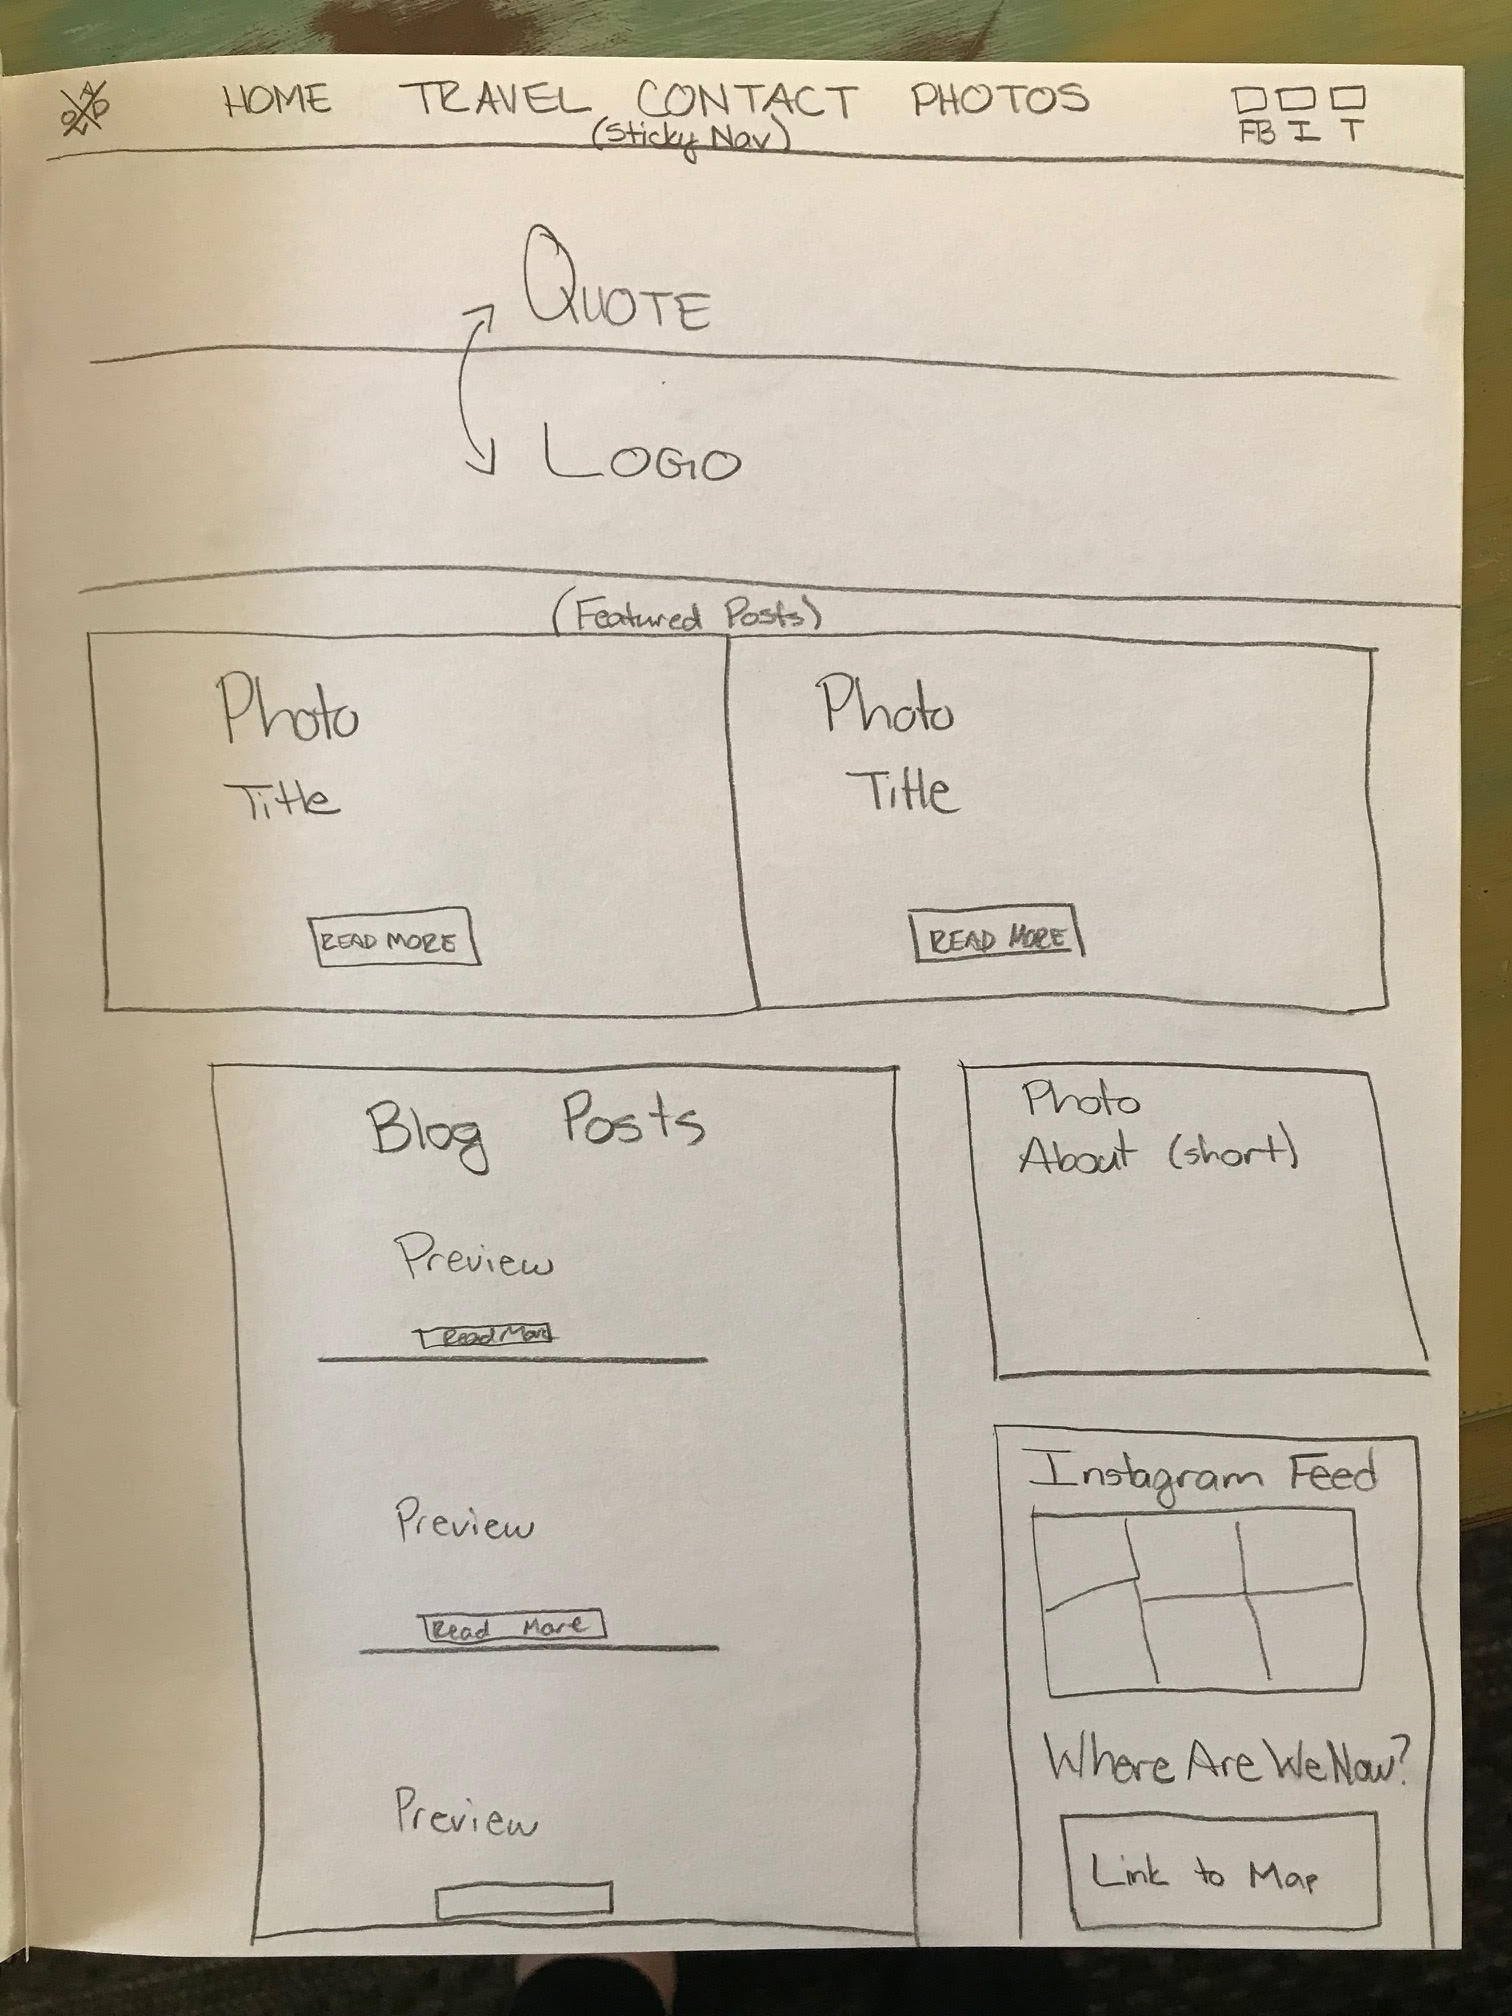 HOME TRAVEL CONTACT PHOTOS
(Sticky Nav)
FB I T
QUOTE
LOGO
(Featured Posts)
Photo Photo
Title Title
READ MORE READ MORE
Blog Posts
Preview
Read More
Preview
Read More
Preview
Photo
About (short)
Instagram Feed
Where Are We Now?
Link to Map